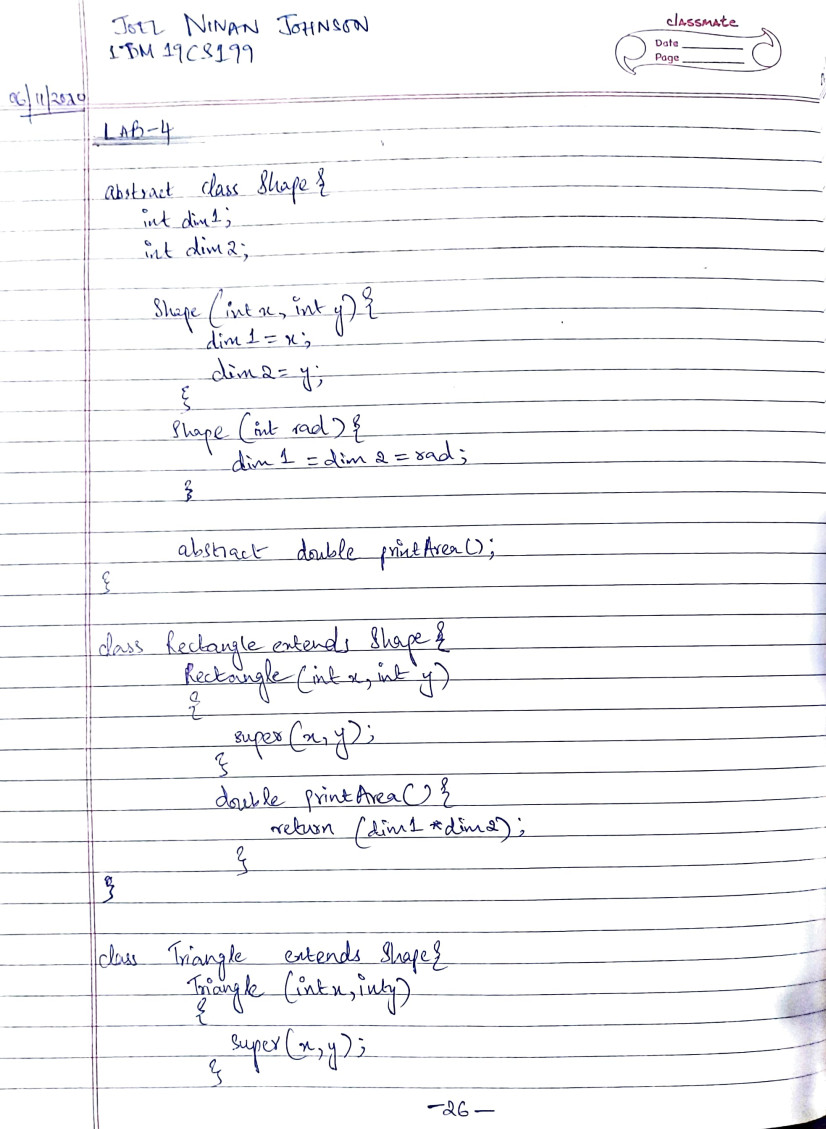 JOEL NINAN JOHNSON
1BM19CS199
classmate
Date
Page
06/11/2020
LAB-4
abstract class Shape {
int dim1;
int dim2;
Shape (int x, int y) {
dim1 = x;
dim2 = y;
}
Shape (int rad) {
dim1 = dim2 = rad;
}
abstract double printArea();
}
class Rectangle extends Shape {
Rectangle (int x, int y)
{
super(x, y);
}
double printArea() {
return (dim1 * dim2);
}
}
class Triangle extends Shape {
Triangle (int x, int y)
{
super(x, y);
}
-26-